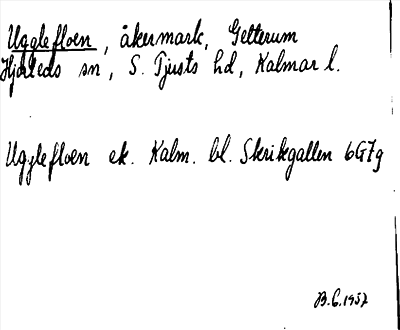 Ugglefloen, åkermark, Gelterum
Hjorteds sn, S. Tjusts hd, Kalmar l.
Ugglefloen ek. Kalm. bl. Skrikgallen 6G7g
B.G.1957